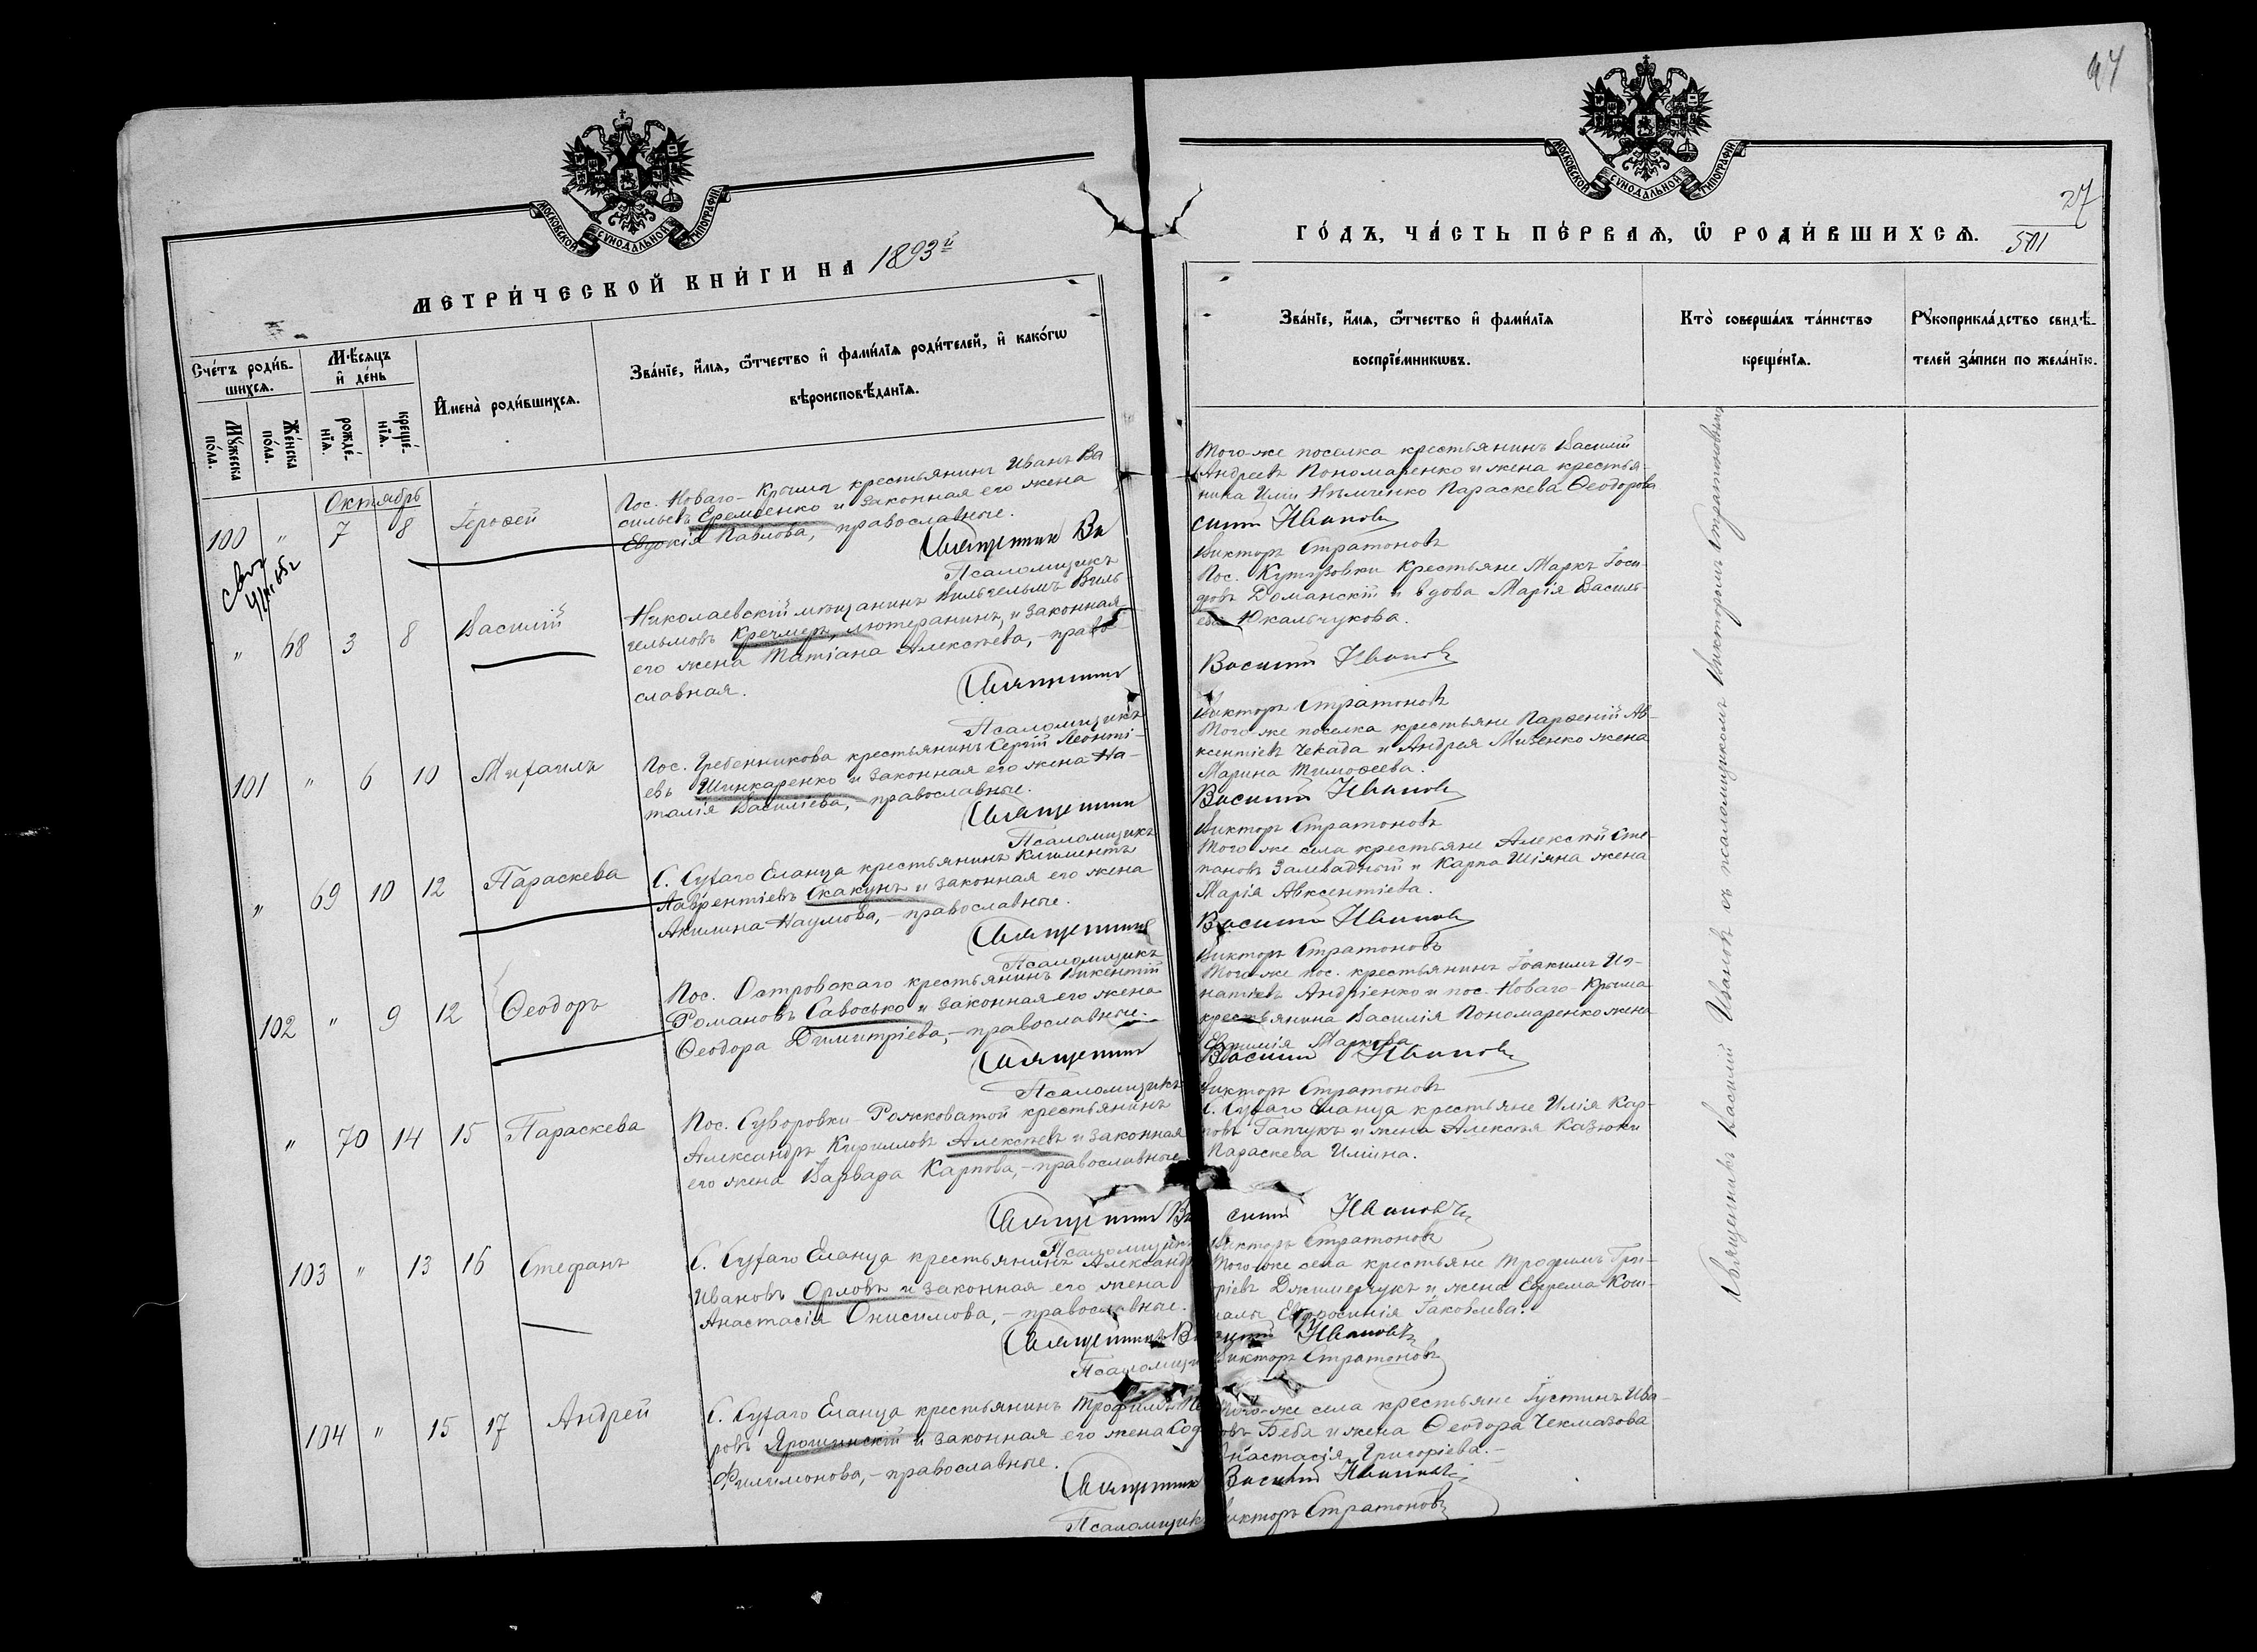 44
МОСКОВСКОЙ СѴНОДАЛЬНОЙ ТИПОГРАФІИ
МОСКОВСКОЙ СѴНОДАЛЬНОЙ ТИПОГРАФІИ
МЕТРИ́ЧЕСКОЙ КНИ́ГИ НА 1893й
ГО́ДЪ, ЧА́СТЬ ПЕ́РВАѦ, Ѿ РОДИ́ВШИХСѦ.
27
501
Сче́тъ роди́в-
шихсѧ.
Мꙋ́жеска по́ла.
Же́нска по́ла.
Мѣ́сѧцъ
и҆ де́нь
рожде́-
нїѧ.
креще́-
нїѧ.
И҆мена̀ роди́вшихсѧ.
Зва́нїе, и҆́мѧ, ѻ҆́тчество и҆ фами́лїѧ роди́телей, и҆ како́гѡ
вѣроисповѣ́данїѧ.
Зва́нїе, и҆́мѧ, ѻ҆́тчество и҆ фами́лїѧ
воспрїе́мникѡвъ.
Кто̀ соверша́лъ та́инство
креще́нїѧ.
Рꙋкоприкла́дство свидѣ́-
телей за́писи по жела́нїю.
Октябрь
100 " 7 8 Іероѳей
Пос. Новаго-Крыма крестьянинъ Иванъ Ва
сильевъ Еремѣенко и законная его жена
Евдокія Павлова, православные.
Священник Ва
Псаломщикъ
Того-же поселка крестьянинъ Василій
Андреевъ Пономаренко и жена крестья-
нина Иліи Нѣмченко Параскева Ѳеодорова
силій Ивановъ
Викторъ Стратоновъ
" 68 3 8 Василій
Николаевскій мѣщанинъ Вильгельмъ Виль-
гельмовъ Кречмеръ, лютеранинъ, и законная
его жена Татіана Алексѣева, - право
славная.
Священник
Псаломщикъ
Пос. Кутузовки крестьяне Маркъ Іоси-
фовъ Доманскій и вдова Марія Василь-
ева Юкальчукова.
Василій Ивановъ
Викторъ Стратоновъ
101 " 6 10 Михаилъ
Пос. Гребенникова крестьянинъ Сергій Леонті-
евъ Шинкаренко и законная его жена На-
талія Василіева, - православные.
Священник
Псаломщикъ
Того же поселка крестьяне Парѳеній Ав-
ксентіевъ Чекада и Андрея Мизенко жена
Марина Тимоѳеева.
Василій Ивановъ
Викторъ Стратоновъ
" 69 10 12 Параскева
С. Сухаго Еланца крестьянинъ Климентъ
Лаврентіевъ Скакунъ и законная его жена
Акилина Наумова, - православные.
Священник
Псаломщикъ
Того же села крестьяне Алексѣй Сте-
пановъ Заливадный и Карпа Шіяна жена
Марія Авксентіева.
Василій Ивановъ
Викторъ Стратоновъ
102 " 9 12 Ѳеодоръ
Пос. Островскаго крестьянинъ Викентій
Романовъ Савосько и законная его жена
Ѳеодора Димитріева, - православные.
Священник
Псаломщикъ
Того же пос. крестьянинъ Іоакимъ Иг-
натіевъ Андріенко и пос. Новаго-Крыма
крестьянина Василія Пономаренко жена
Маркова.
Василій Ивановъ
Викторъ Стратоновъ
" 70 14 15 Параскева
Пос. Суворовки-Рожковатой крестьянинъ
Александръ Кирилловъ Алексѣевъ и законная
его жена Варвара Карпова, - православные
Священник Ва
Псаломщикъ
С. Сухаго Еланца крестьяне Илія Кар-
повъ Гапчукъ и жена Алексѣя Казюки
Параскева Иліина.
силій Ивановъ
Викторъ Стратоновъ
103 " 13 16 Стефанъ
С. Сухаго Еланца крестьянинъ Александръ
Ивановъ Орловъ и законная его жена
Анастасія Онисимова, - православные.
Священникъ Ва
Псаломщи
Того же села крестьяне Трофимъ Гри-
ріевъ Джимерчукъ и жена Ефрема Кош-
Евфросинія Іаковлева.
силій Ивановъ
Викторъ Стратоновъ
104 " 15 17 Андрей
С. Сухаго Еланца крестьянинъ Трофимъ
ровъ Ярошинскій и законная его жена Соф
Филимонова, - православные.
Священник
Псаломщик
Того-же села крестьяне Іустинъ Ива-
новъ Беба и жена Ѳеодора Чекмазова
Анастасія Григоріева. -
Василій Ивановъ
Викторъ Стратоновъ
Священникъ Василій Ивановъ съ псаломщикомъ Викторомъ Стратоновымъ